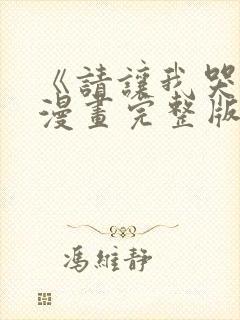 《請讓我哭
漫畫完整版
馮維靜